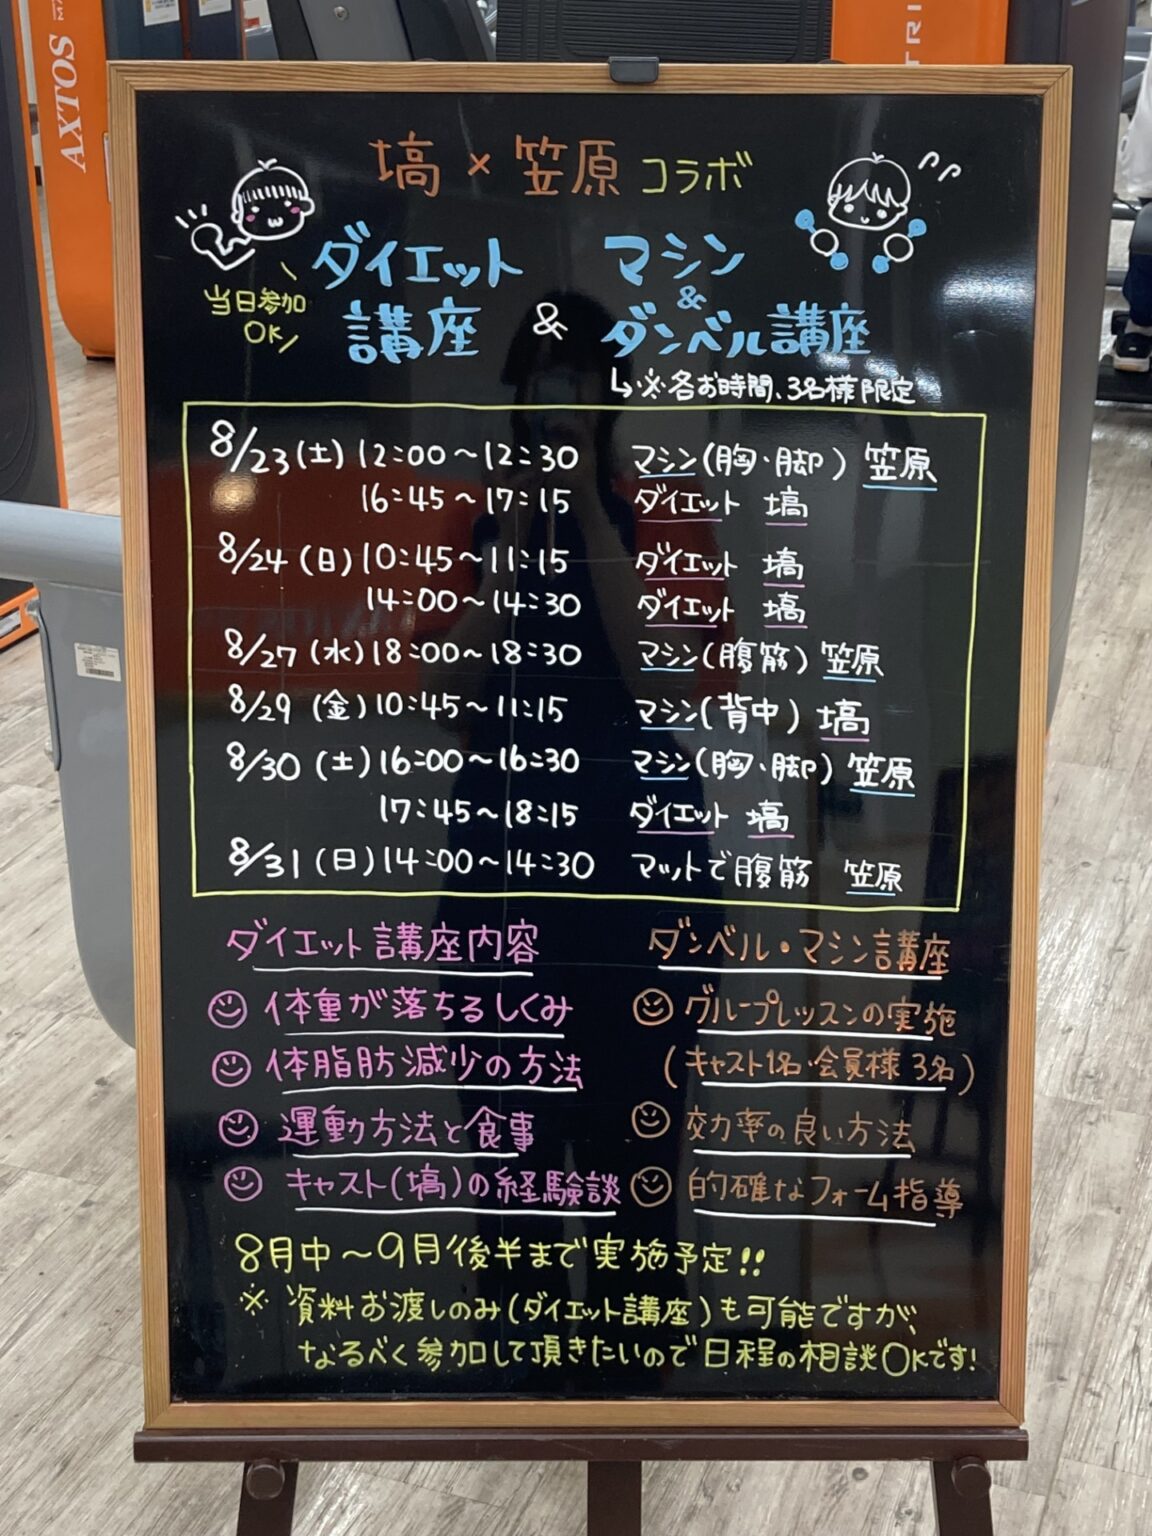 AXTOS
TRI
塙×笠原コラボ
当日参加
OK
ダイエット
講座
&
マシン
&
ダンベル講座
↳※各お時間、3名様限定
8/23(土) 12:00〜12:30 マシン(胸・脚) 笠原
16:45〜17:15 ダイエット 塙
8/24(日) 10:45〜11:15 ダイエット 塙
14:00〜14:30 ダイエット 塙
8/27(水) 18:00〜18:30 マシン(腹筋) 笠原
8/29(金) 10:45〜11:15 マシン(背中) 塙
8/30(土) 16:00〜16:30 マシン(胸・脚) 笠原
17:45〜18:15 ダイエット 塙
8/31(日) 14:00〜14:30 マットで腹筋 笠原
ダイエット講座内容
体重が落ちるしくみ
体脂肪減少の方法
運動方法と食事
キャスト(塙)の経験談
ダンベル・マシン講座
グループレッスンの実施
(キャスト1名・会員様3名)
効率の良い方法
的確なフォーム指導
8月中〜9月後半まで実施予定!!
※資料お渡しのみ(ダイエット講座)も可能ですが、
なるべく参加して頂きたいので日程の相談OKです!